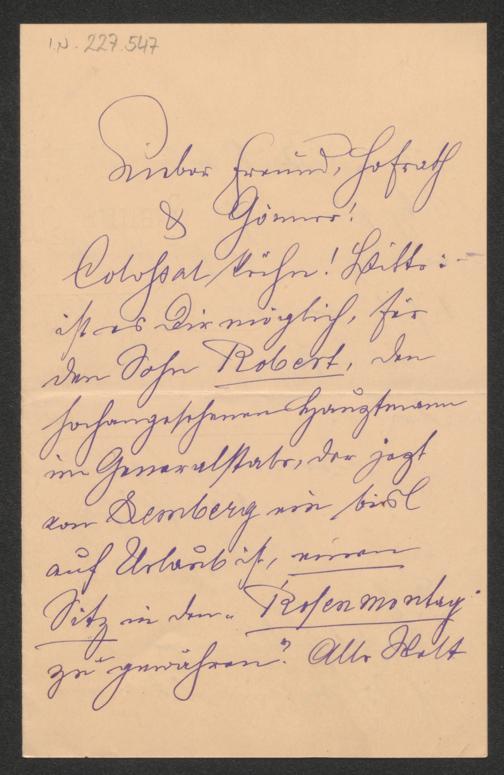 I.N. 227.547
Lieber Freund, Hofrath
& Gönner!
Colossal kühn! Bitte:-
ist es Dir möglich, für
den Sohn Robert, den
hochangesehenen Hauptmann
im Generalstabe, der jetzt
von Lemberg ein bissl
auf Urlaub ist, einen
Sitz in den „Rosenmontag"
zu gewähren? Alle Welt